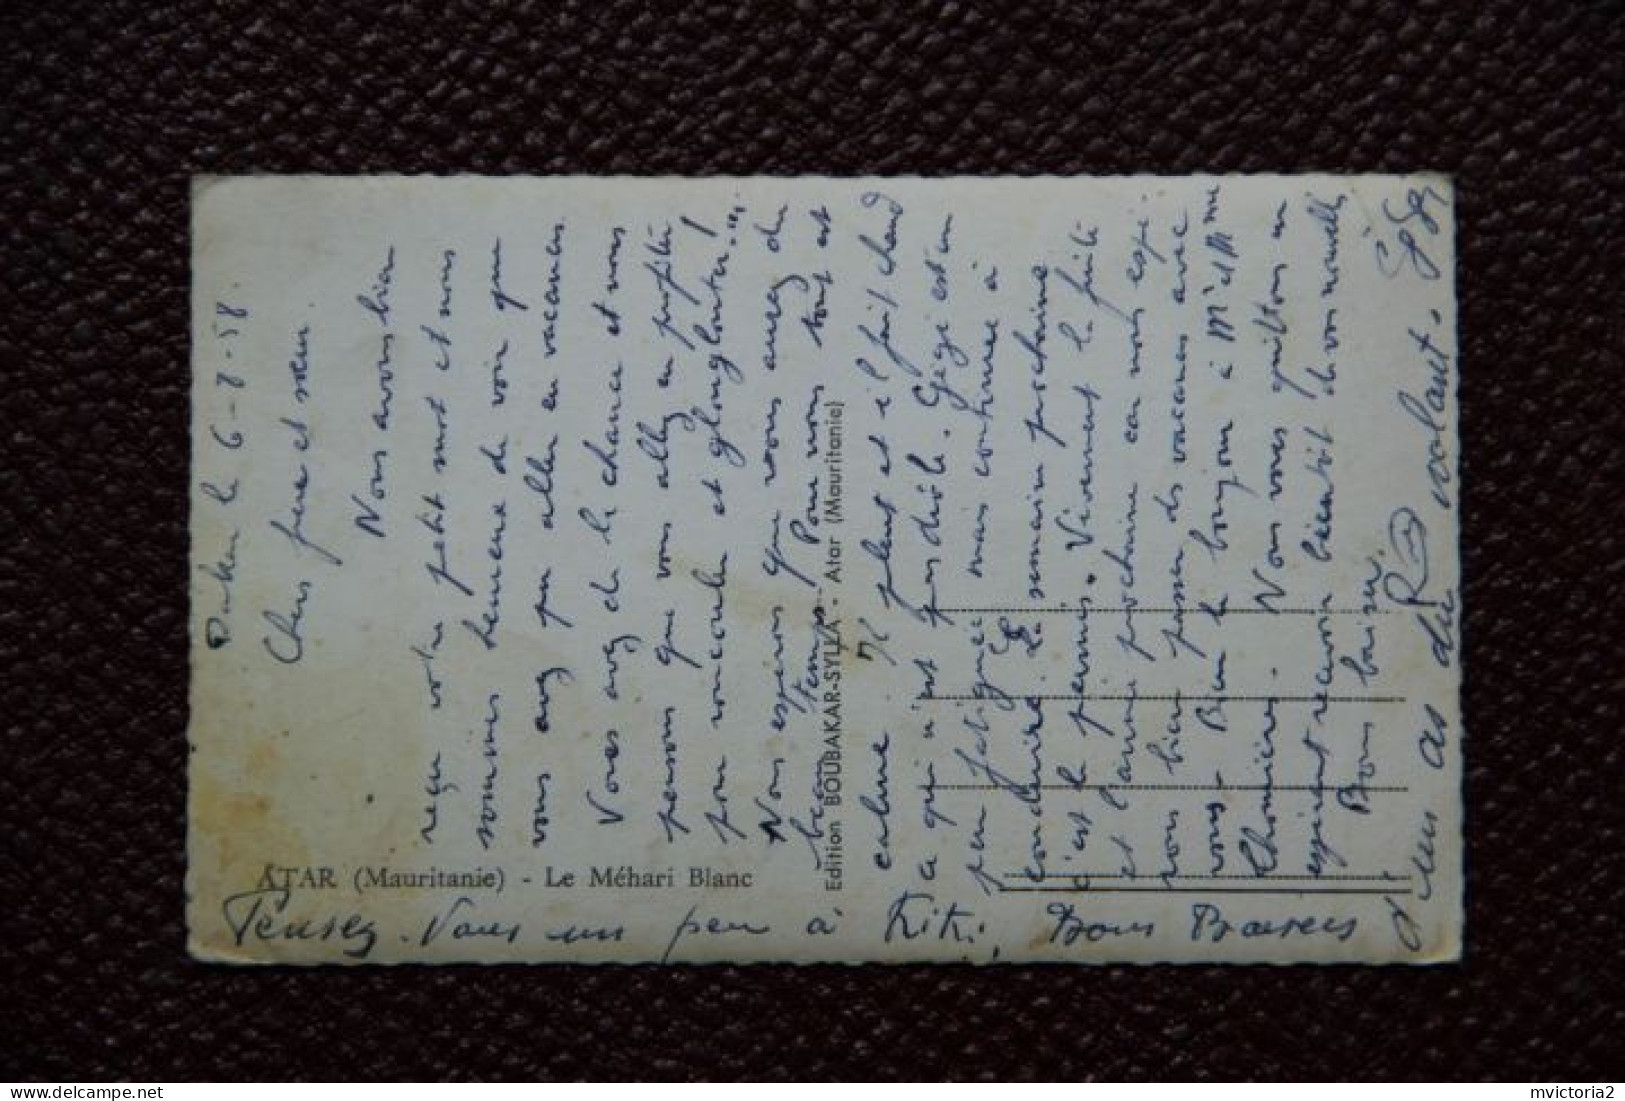 Dakar le 6-8-58.
Chers frère et sœur.
Nous avons bien
reçu votre petit mot et nous
sommes heureux de voir que
vous avez pu aller en vacances
Vous avez de la chance et nous
pensons que vous allez en profiter
pour roucouler et glouglouter!...
Nous espérons que vous aurez du
beau temps. Pour nous tout est
calme. Il pleut et il fait chaud
ce qui n'est pas drôle. Gégé est un
peu fatiguée mais continue à
conduire. La semaine prochaine
c'est le permis. Vivement la fuite
et l'année prochaine car nous espé-
rons bien passer des vacances avec
vous. Bien le bonjour à Mr et Mme
Thomières. Nous vous quittons en
espérant recevoir bientôt de vos nouvelles
Bons baisers.
d'un as du volant. Gégé
ATAR (Mauritanie) - Le Méhari Blanc
Edition BOUBAKAR-SYLLA - Atar (Mauritanie)
Pensez-Vous un peu à Kiki, Bons Baisers
mvictoria2